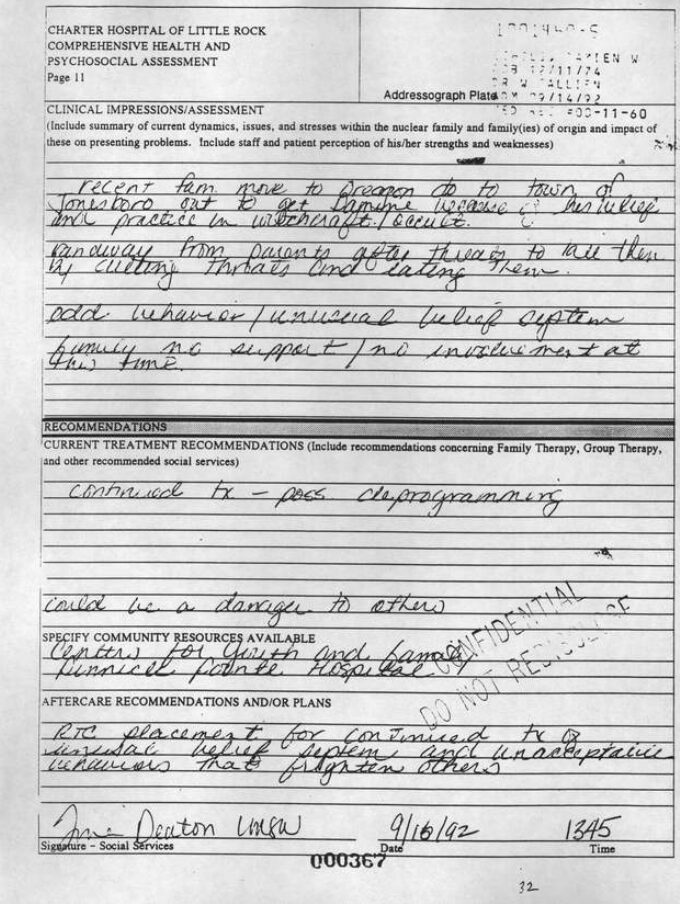 CHARTER HOSPITAL OF LITTLE ROCK
COMPREHENSIVE HEALTH AND
PSYCHOSOCIAL ASSESSMENT
Page 11
Addressograph Plate
09/14/92
-11-60
CLINICAL IMPRESSIONS/ASSESSMENT
(Include summary of current dynamics, issues, and stresses within the nuclear family and family(ies) of origin and impact of
these on presenting problems. Include staff and patient perception of his/her strengths and weaknesses)
recent fam move to Oreagon do to town of
Jonesboro out to get Damine because of his belief
and practice in witchcraft/occult.
from parents after threats to kill them
by cutting throats and eating them.
odd behavior/unusual belief system
family no support/no involvement at
this time.
RECOMMENDATIONS
CURRENT TREATMENT RECOMMENDATIONS (Include recommendations concerning Family Therapy, Group Therapy,
and other recommended social services)
continued tx - poss deprogramming
could be a danger to others
SPECIFY COMMUNITY RESOURCES AVAILABLE
Centers for Youth and Family
Pointe Hospital
CONFIDENTIAL
DO NOT REDISCLOSE
AFTERCARE RECOMMENDATIONS AND/OR PLANS
RTC placement for continued tx of
unusual belief system and unacceptable
behaviors that frighten others
Deaton 9/16/92 1345
Signature - Social Services Date Time
000367
32